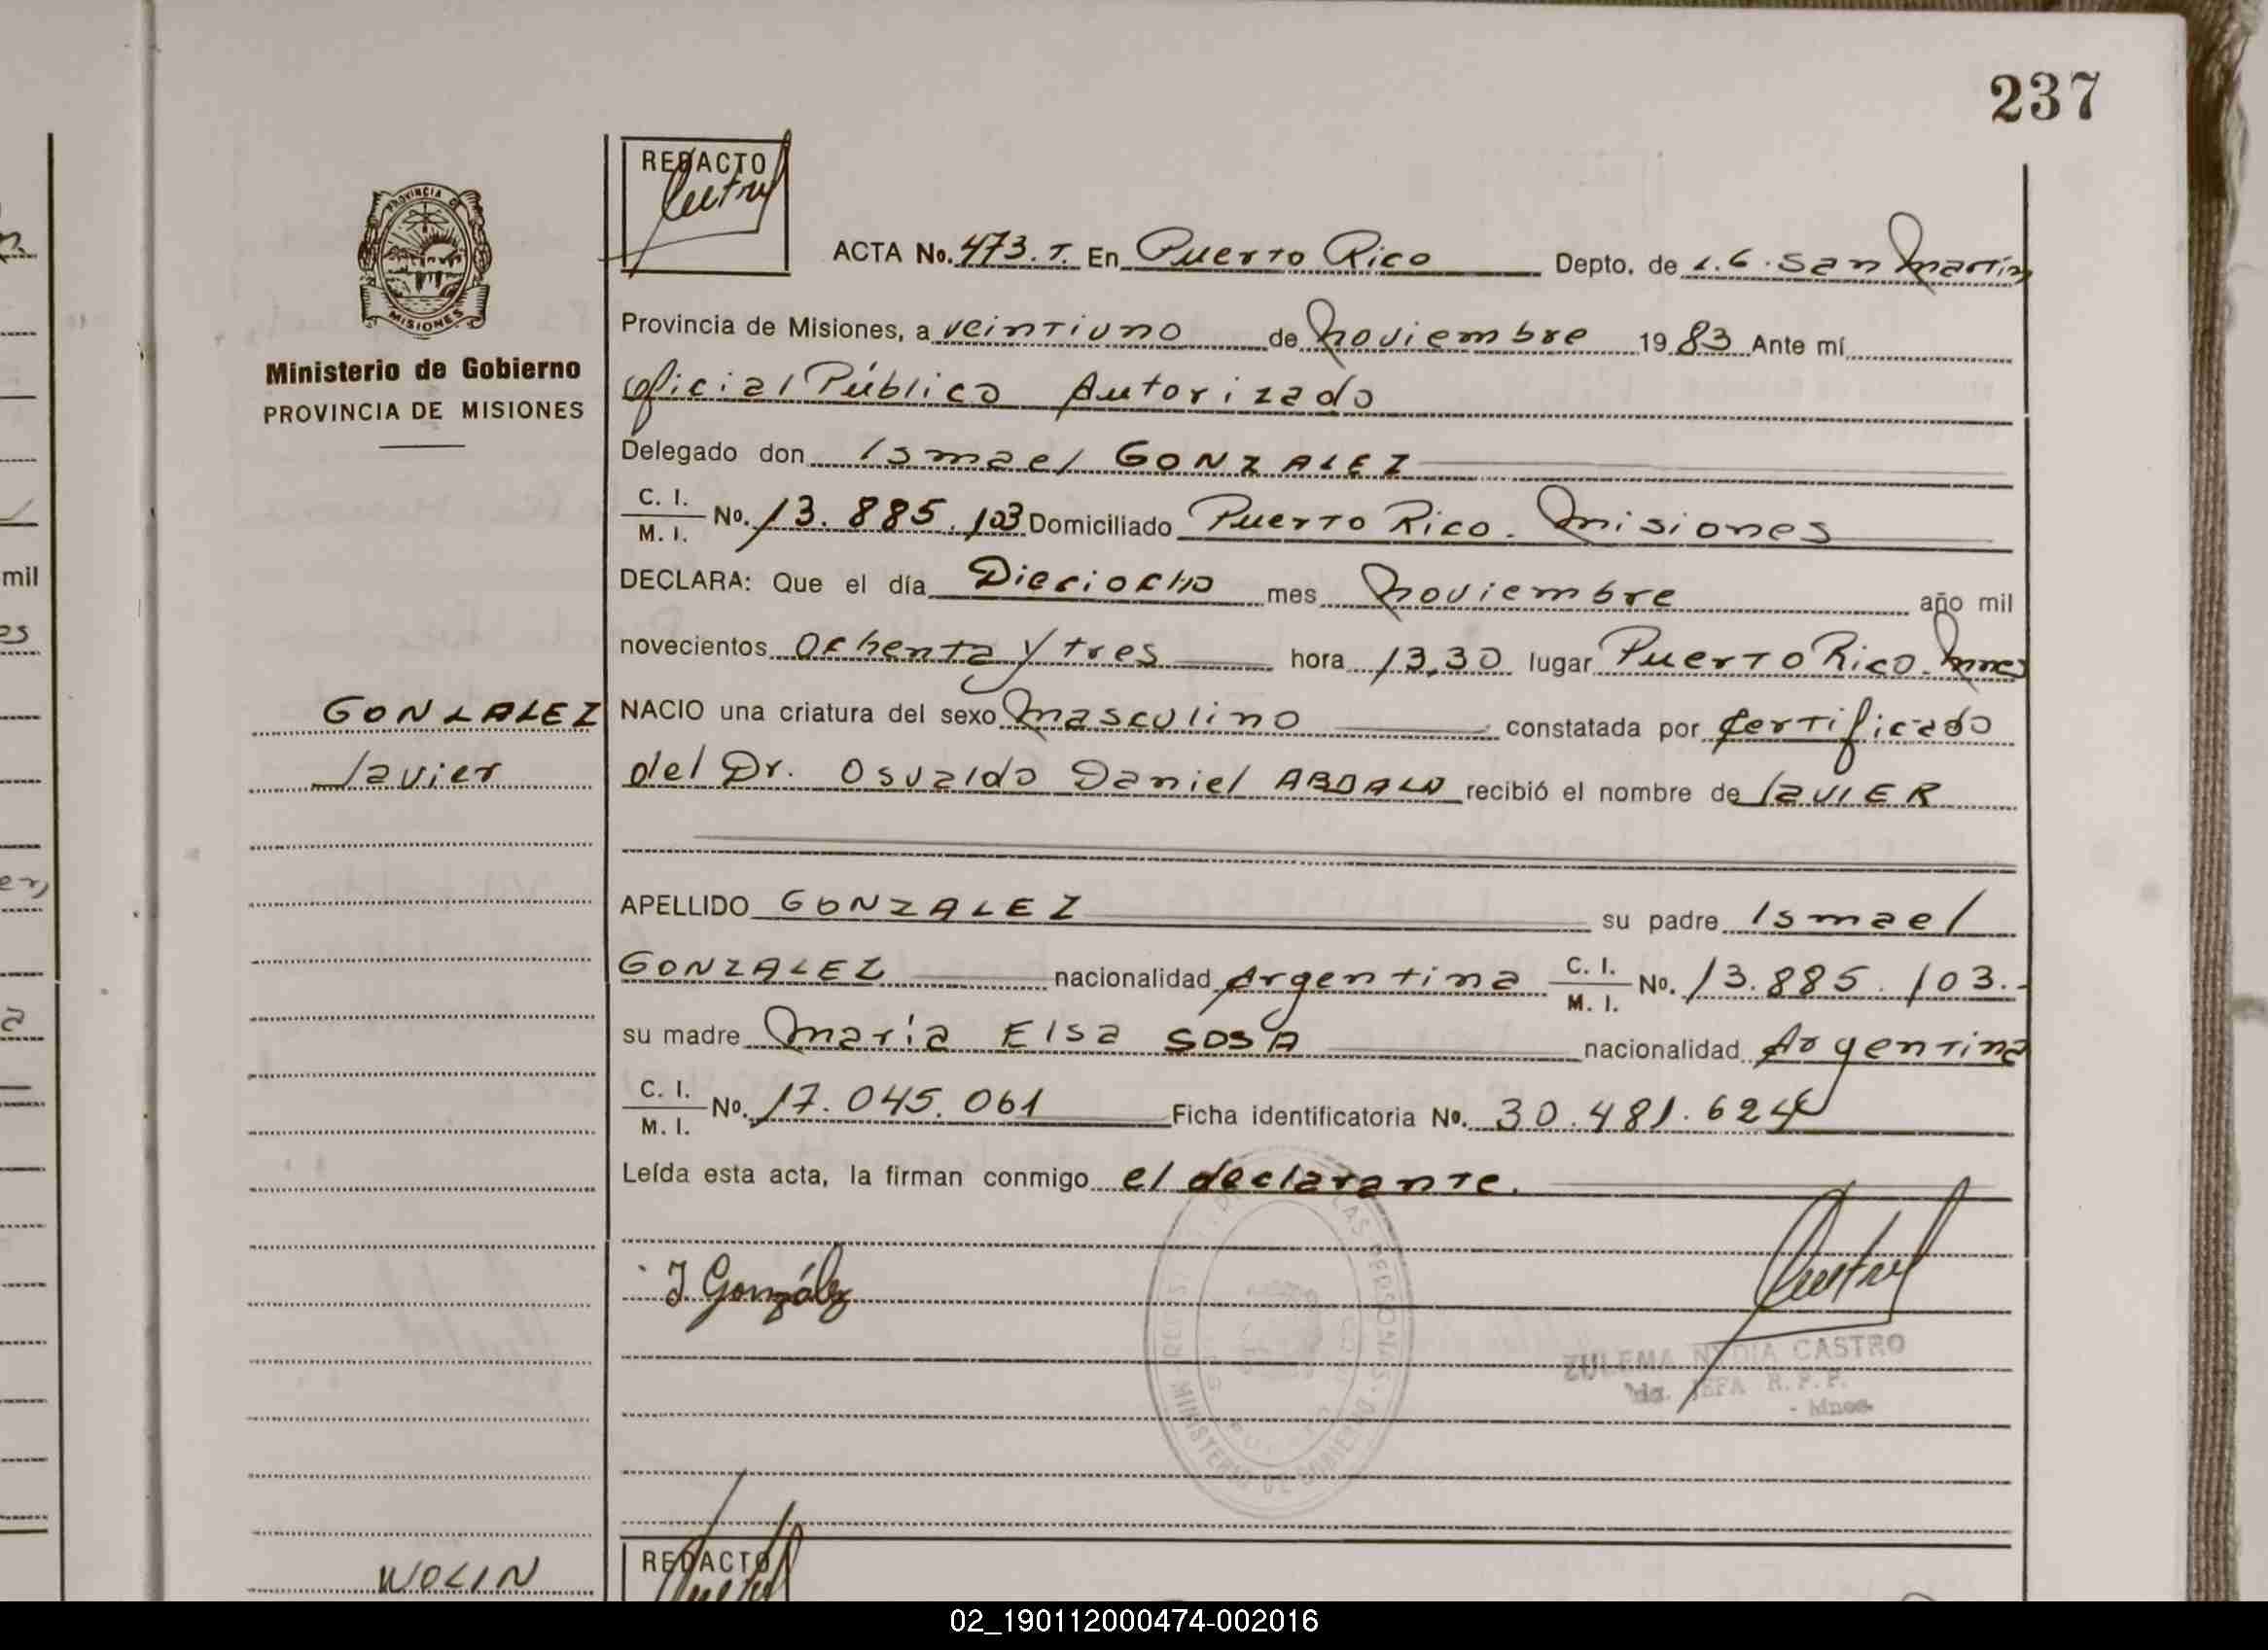 237
REDACTO
PROVINCIA D
MISIONES
Ministerio de Gobierno
PROVINCIA DE MISIONES
ACTA No. 473. T. En Puerto Rico Depto. de L. G. San Martin
Provincia de Misiones, a veintiuno de Noviembre 1983 Ante mí
Oficial Público Autorizado
Delegado don Ismael GONZALEZ
C. I.
M. I. No. 13.885.103 Domiciliado Puerto Rico. Misiones
DECLARA: Que el día Dieciocho mes Noviembre año mil
novecientos Ochenta y tres hora 13,30 lugar Puerto Rico. Mnes
GONZALEZ NACIO una criatura del sexo Masculino constatada por Certificado
Javier del Dr. Osvaldo Daniel recibió el nombre de JavIER
APELLIDO GONZALEZ su padre Ismael
GONZALEZ nacionalidad Argentina C. I.
M. I. No. 13.885.103.-
su madre María Elsa SOSA nacionalidad Argentina
C. I.
M. I. No. 17.045.061 Ficha identificatoria No. 30.481.624
Leída esta acta, la firman conmigo el declarante.
J González
ZULEMA NYDIA CASTRO
JEFA R. P. P.
- Mnes.
LAS PERSONAS - MINISTERIO DE GOBIERNO
WOLIN
REDACTO
mil
es
02_190112000474-002016